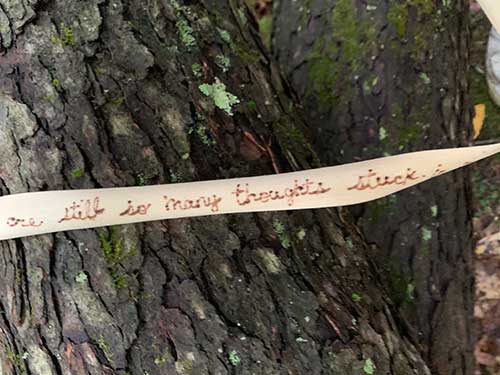 are still so many thoughts stuck